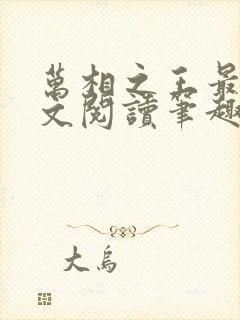 萬相之王最
文閱讀笔趣
大烏